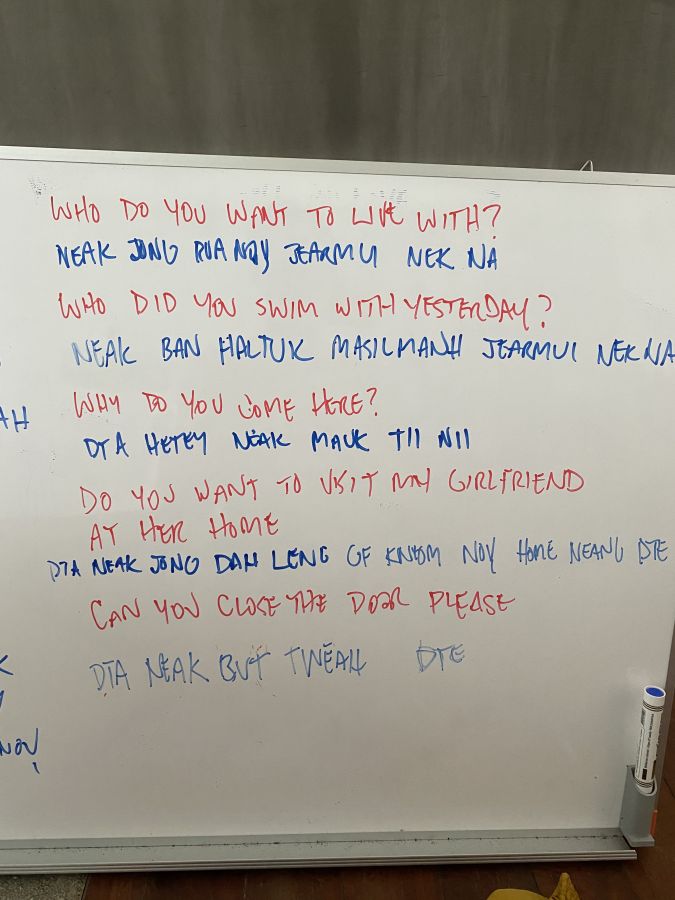 WHO DO YOU WANT TO LIVE WITH?
NEAK JONG RUA NOY JEARMUI NEK NA
WHO DID YOU SWIM WITH YESTERDAY?
NEAK BAN HALTUK MASILMANH JEARMUI NEK NA
AH
WHY DO YOU COME HERE?
DTA HETEY NEAK MAUK TII NII
DO YOU WANT TO VISIT MY GIRLFRIEND
AT HER HOME
DTA NEAK JONG DAH LENG GF KNYOM NOV HOME NEANG DTE
CAN YOU CLOSE THE DOOR PLEASE
DTA NEAK BUT TWEAH DTE
NOV